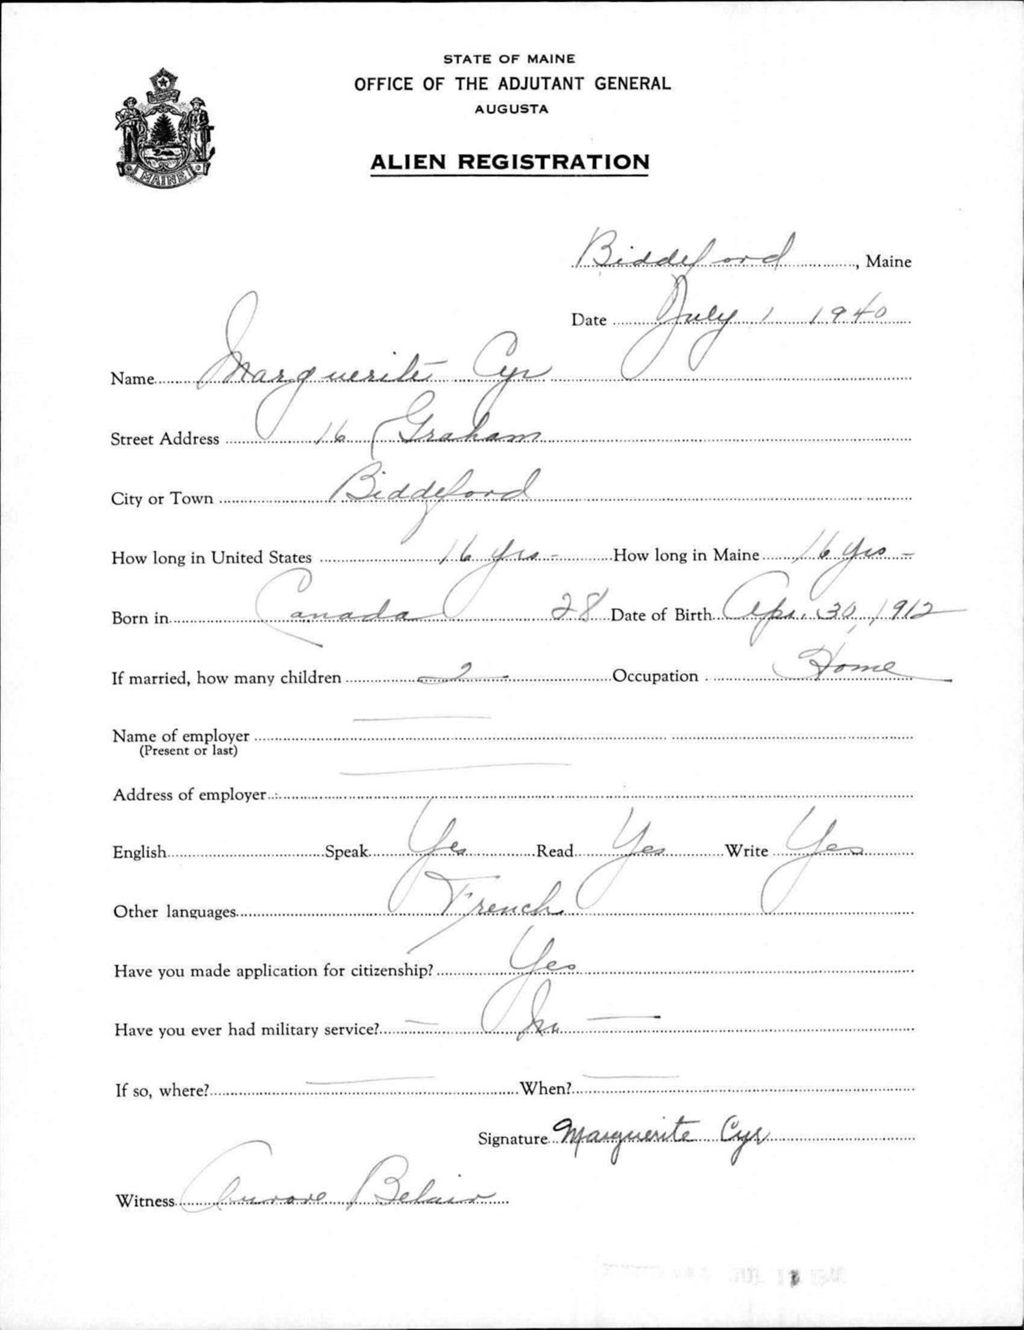 STATE OF MAINE
OFFICE OF THE ADJUTANT GENERAL
AUGUSTA
MAINE
ALIEN REGISTRATION
Biddeford, Maine
Date July 1 1940
Name Marguerite Cyr
Street Address 16 Graham
City or Town Biddeford
How long in United States 16 yrs - How long in Maine 16 yrs -
Born in Canada 28 Date of Birth Apr. 30, 1912
If married, how many children 2 Occupation Home
Name of employer
(Present or last)
Address of employer
English Speak Yes Read Yes Write Yes
Other languages French
Have you made application for citizenship? Yes
Have you ever had military service? — No —
If so, where? When?
Signature Marguerite Cyr
Witness Aurore Belair